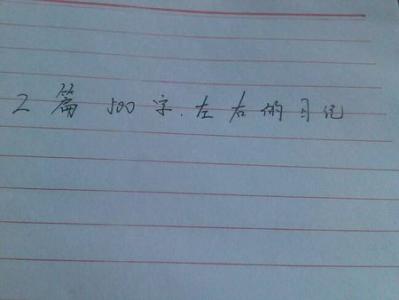 2篇 500字.左右的日记